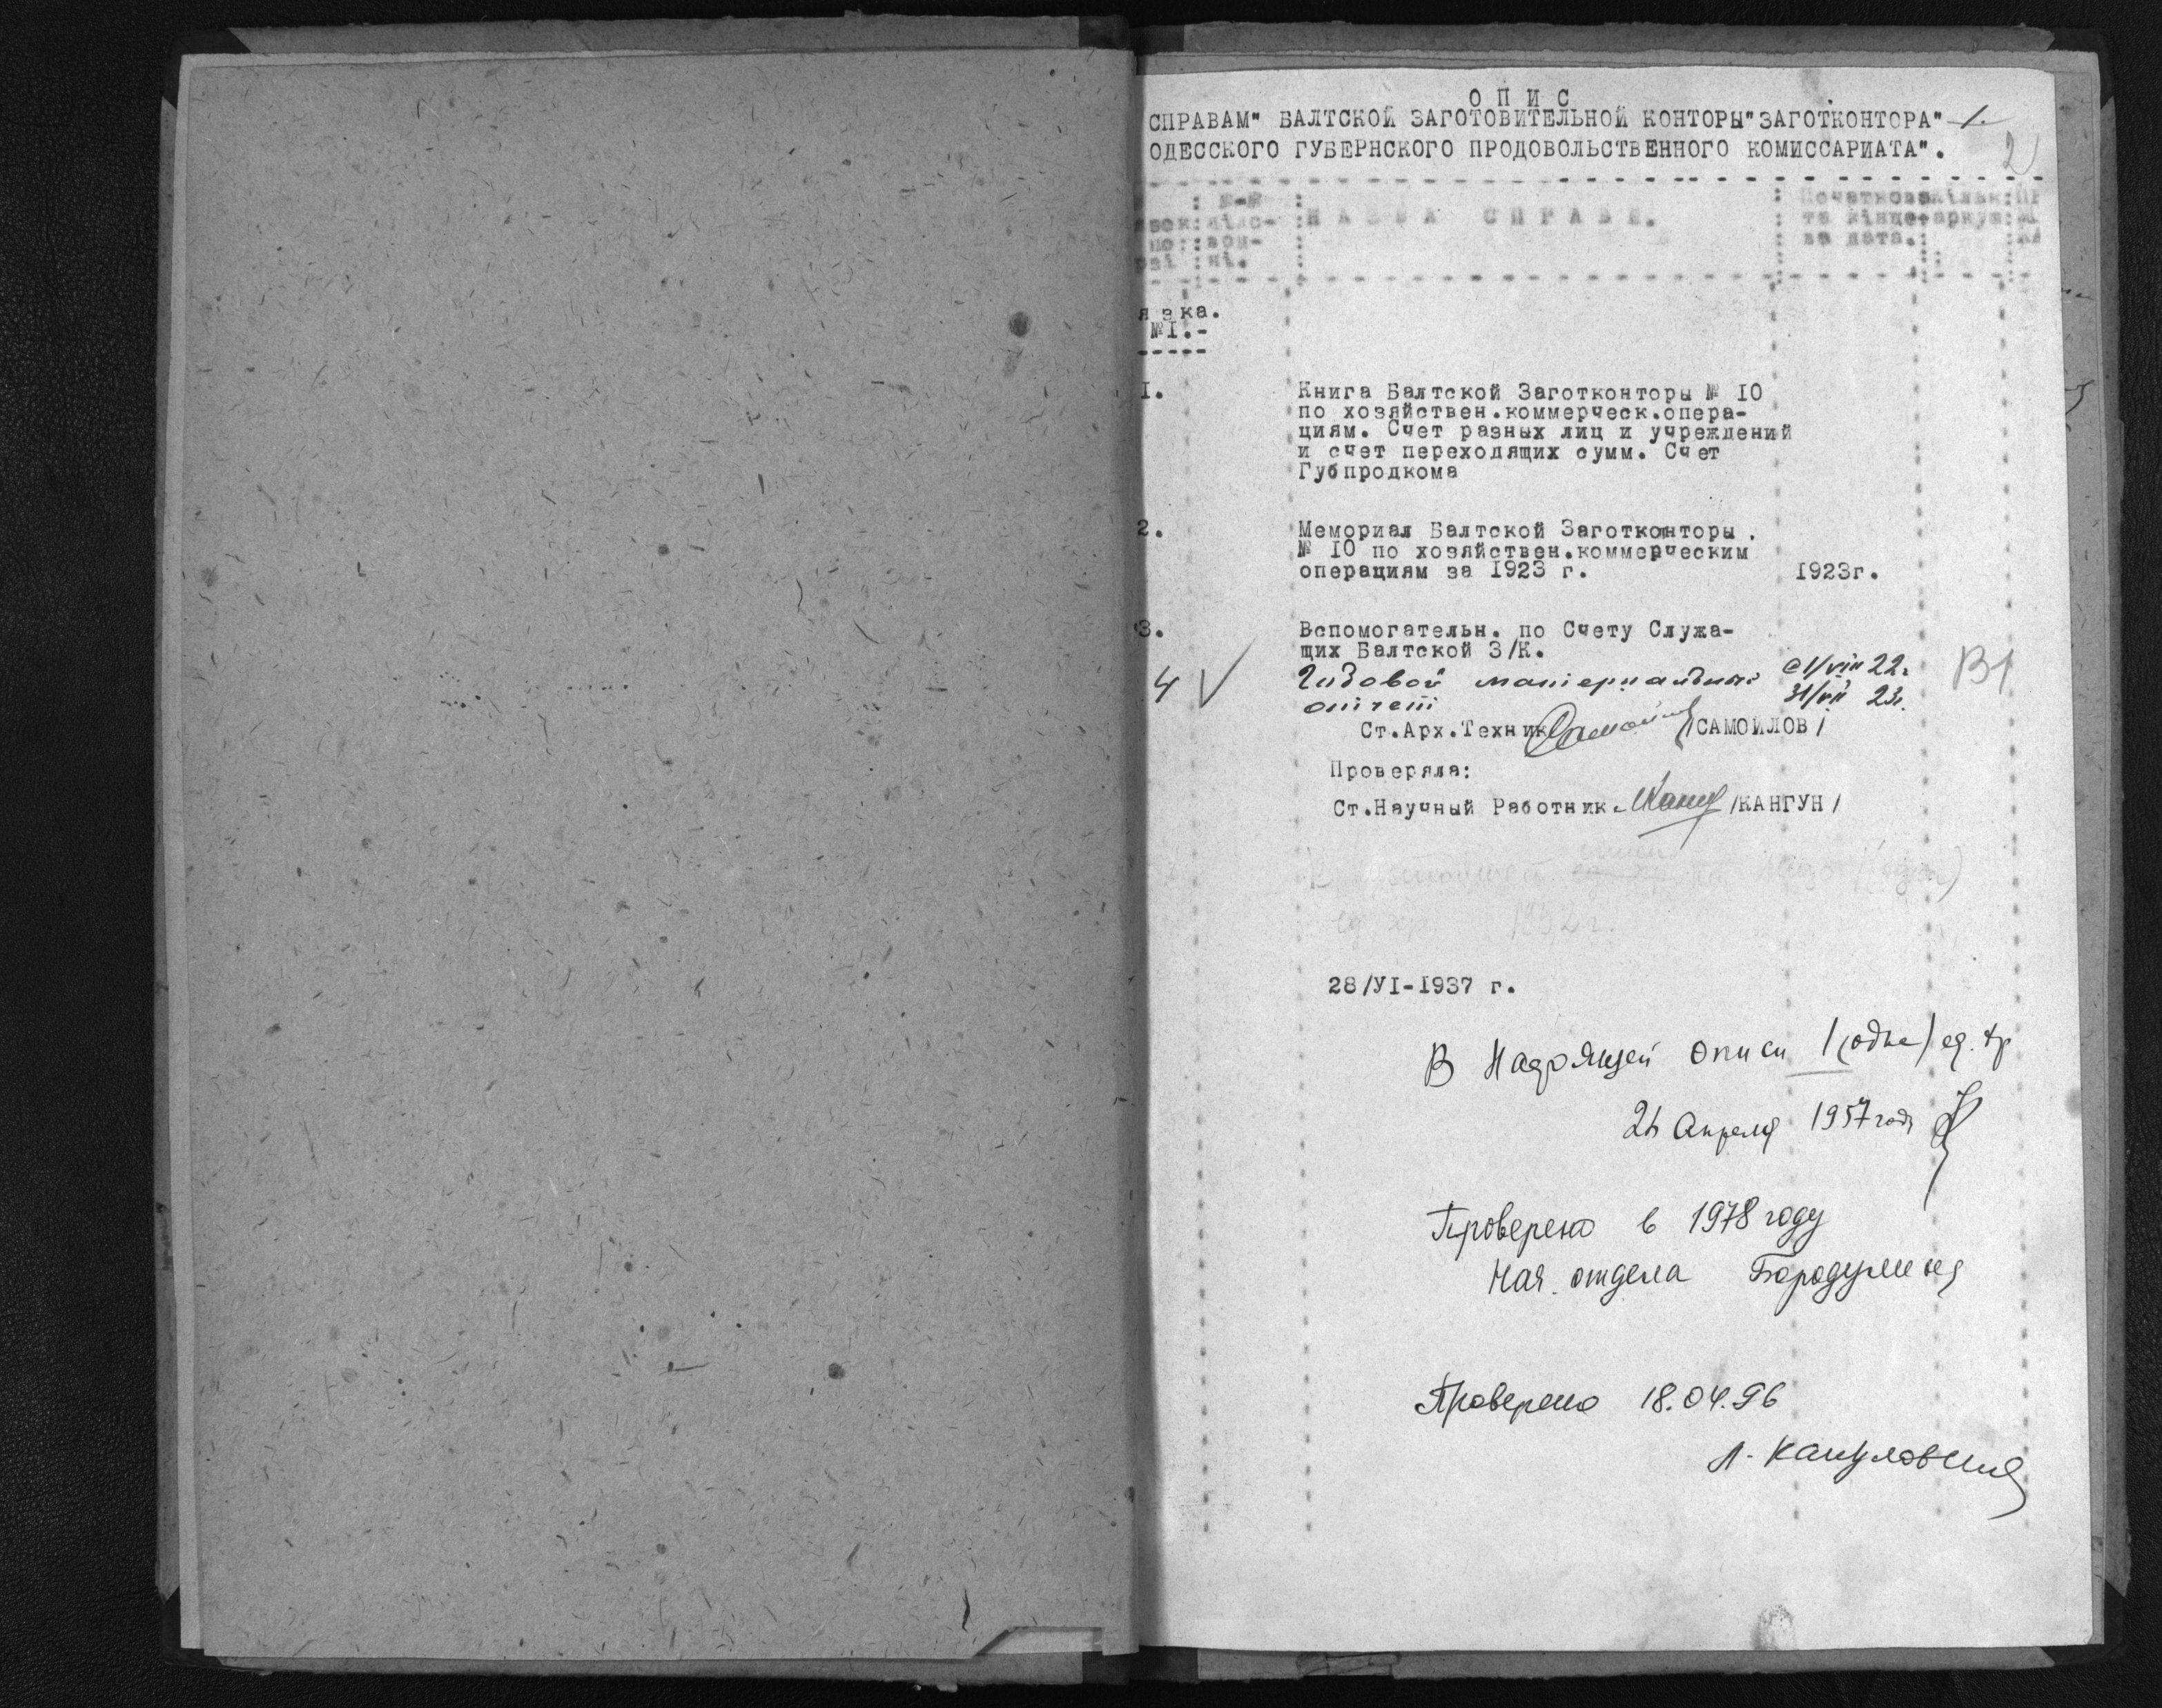 О П И С
СПРАВАМ" БАЛТСКОЙ ЗАГОТОВИТЕЛЬНОЙ КОНТОРЫ"ЗАГОТКОНТОРА" 1.
ОДЕССКОГО ГУБЕРНСКОГО ПРОДОВОЛЬСТВЕННОГО КОМИССАРИАТА". 2
Н А З В А С П Р А В И.
та кінце- аркуш
ва дата.
язка.
№I.-
I. Книга Балтской Заготконторы № IO
по хозяйствен.коммерческ.опера-
циям. Счет разных лиц и учреждений
и счет переходящих сумм. Счет
Губпродкома
2. Мемориал Балтской Заготконторы.
№ IO по хозяйствен.коммерческим
операциям за I923 г. I923г.
3. Вспомогательн. по Счету Служа-
щих Балтской З/К.
4 V Годовой материальный с 1/VIII 22г.
отчет 31/VII 23г.
Ст.Арх.Техник /САМОЙЛОВ/
Проверяла:
Ст.Научный Работник /КАНГУН/
28/УI-I937 г.
В Надоящей описи 1 (одна) ед. хр
Апреля 1957 года
Проверено в 1978 году
Нач. отдела Бородулина
Проверено 18.04.96